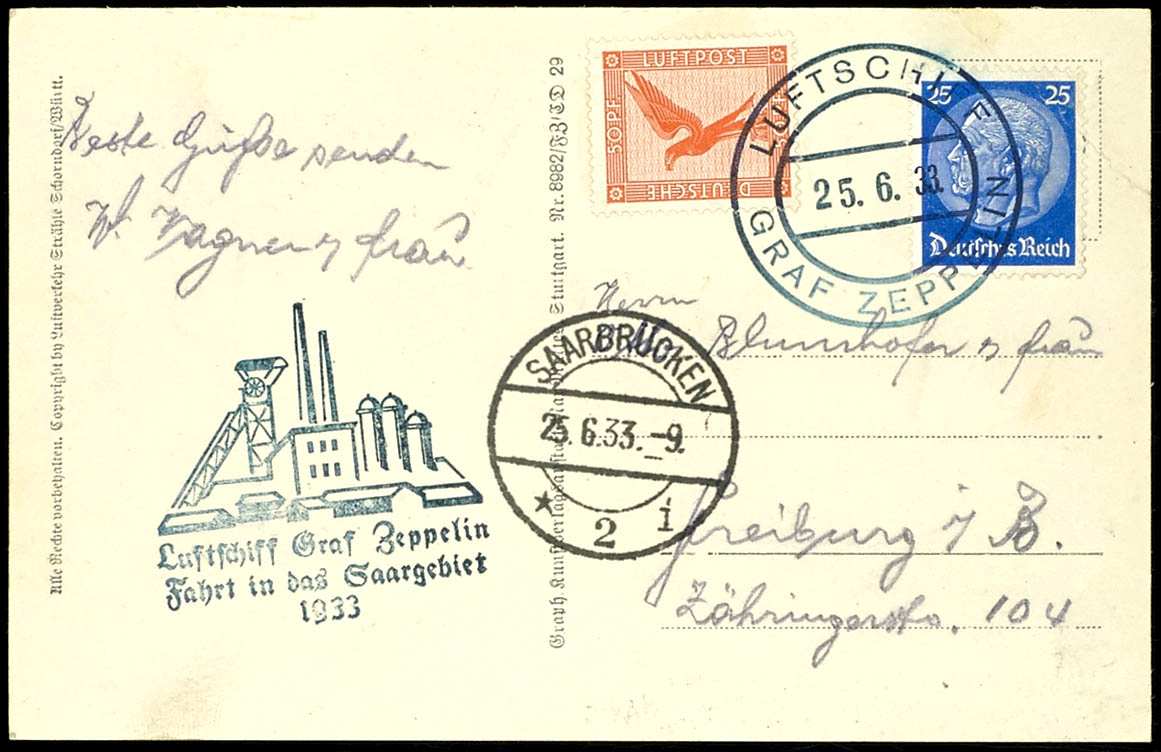 Alle Rechte vorbehalten. Copyright by Luftverkehr Strähle Schorndorf/Württ.
Beste Grüße senden
W. Wagner u frau
Luftschiff Graf Zeppelin
Fahrt in das Saargebiet
1933
Graph. Kunstverlagsanstalt Stuttgart. Nr. 8982/FZ/CD 29
LUFTPOST
50 PF
50 PF
DEUTSCHE
LUFTSCHIFF
25.6.33.
GRAF ZEPPELIN
25 25
Deutsches Reich
SAARBRÜCKEN
25.6.33.-9.
★ 2 i
Herrn
Blumhofer u frau
Freiburg i/B.
Zähringerstr. 104